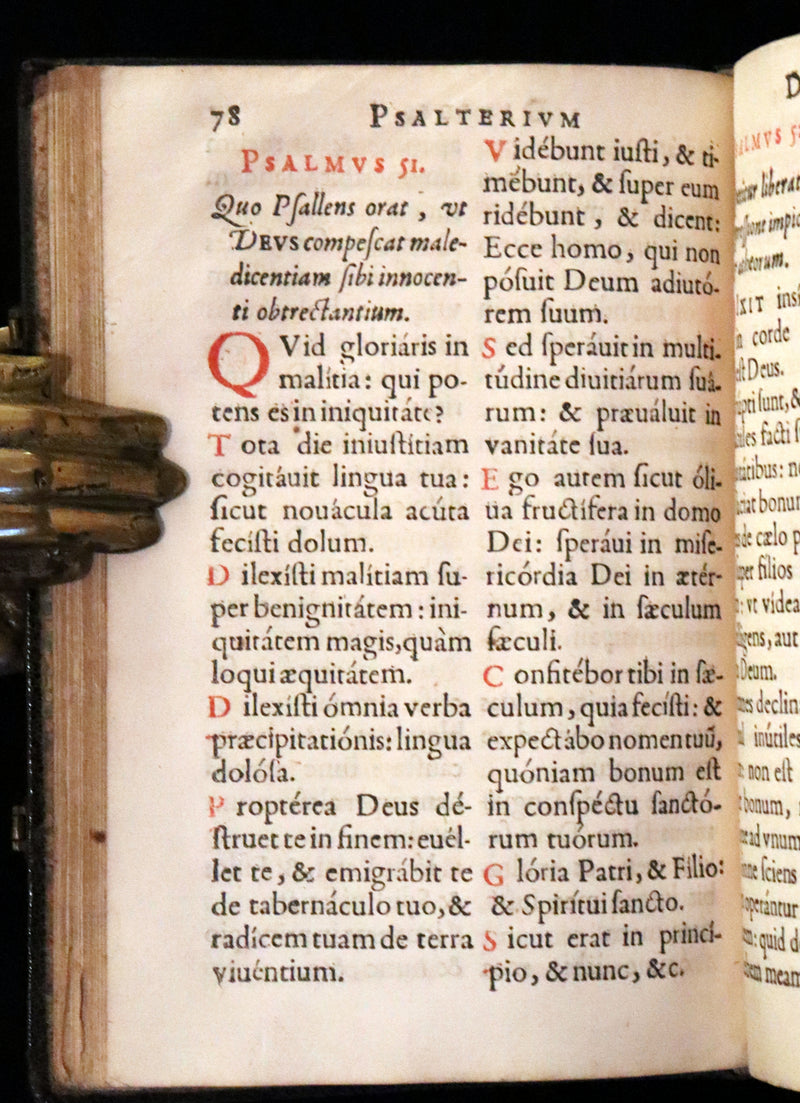 78
PSALTERIVM
PSALMVS 51.
Quo Pſallens orat, vt
DEVS compeſcat male-
dicentiam ſibi innocen-
ti obtrectantium.
QVid gloriáris in
malítia: qui po-
tens es in iniquitáte?
Tota die iniuſtítiam
cogitáuit lingua tua:
ſicut nouácula acúta
feciſti dolum.
Dilexíſti malítiam ſu-
per benignitátem: ini-
quitátem magis, quàm
loqui æquitátem.
Dilexíſti ómnia verba
præcipitatiónis: lingua
dolóſa.
Proptérea Deus dé-
ſtruet te in finem: euél-
let te, & emigrábit te
de tabernáculo tuo, &
radícem tuam de terra
viuéntium.
Vidébunt iuſti, & ti-
mébunt, & ſuper eum
ridébunt, & dicent:
Ecce homo, qui non
póſuit Deum adiutó-
rem ſuum.
Sed ſperáuit in multi-
túdine diuitiárum ſuá-
rum: & præuáluit in
vanitáte ſua.
Ego autem ſicut óli-
ua fructífera in domo
Dei: ſperáui in miſe-
ricórdia Dei in ætér-
num, & in ſæculum
ſæculi.
Confitébor tibi in ſæ-
culum, quia feciſti: &
expectábo nomen tuũ,
quóniam bonum eſt
in conſpéctu ſanctó-
rum tuórum.
Glória Patri, & Filio:
& Spirítui ſancto.
Sicut erat in princí-
pio, & nunc, &c.
corde
Deus.
ſunt, &
bonum
de cælo
filios
vt videa
aut
Deum.
declin
inútiles
non eſt
bonum,
ad vnum
ſciens
quid d
meam